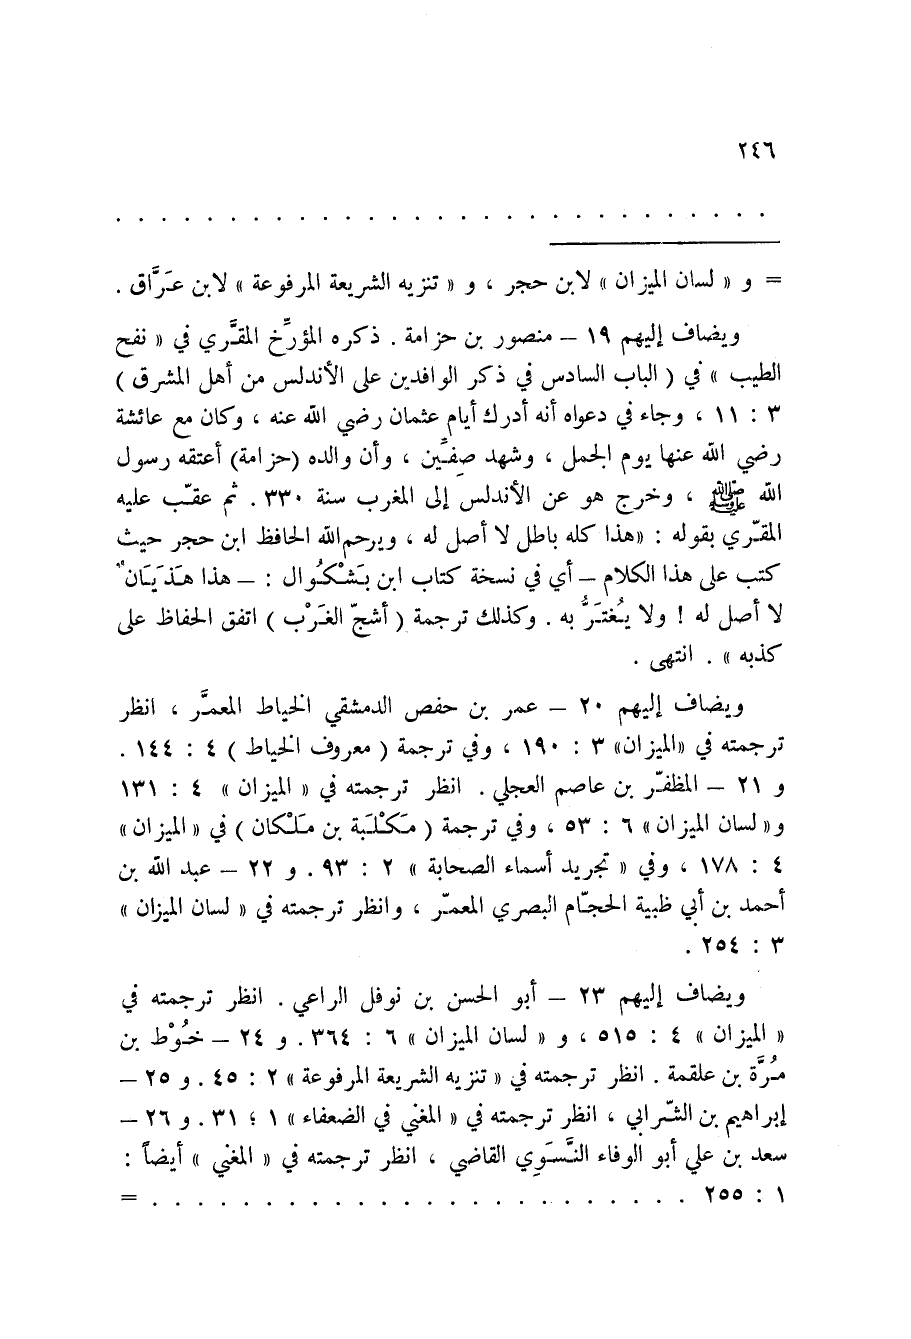 ٢٤٦
. . . . . . . . . . . . . . . . . . . . . . . . . . . . .
= و « لسان الميزان » لابن حجر ، و « تنزيه الشريعة المرفوعة » لابن عَرَّاق .
ويضاف إليهم ١٩ – منصور بن حزامة . ذكره المؤرِّخ المقَّري في « نفح
الطيب » في ( الباب السادس في ذكر الوافدين على الأندلس من أهل المشرق )
٣ : ١١ ، وجاء في دعواه أنه أدرك أيام عثمان رضي الله عنه ، وكان مع عائشة
رضي الله عنها يوم الجمل ، وشهد صِفِّين ، وأن والده (حزامة) أعتقه رسول
الله ﷺ ، وخرج هو عن الأندلس إلى المغرب سنة ٣٣٠ . ثم عقّب عليه
المقّري بقوله : «هذا كله باطل لا أصل له ، ويرحم الله الحافظ ابن حجر حيث
كتب على هذا الكلام – أي في نسخة كتاب ابن بَشْكُوال : – هذا هَذَيَان
لا أصل له ! ولا يُغتَرُّ به . وكذلك ترجمة ( أشجّ الغَرْب ) اتفق الحفاظ على
كذبه » . انتهى .
ويضاف إليهم ٢٠ – عمر بن حفص الدمشقي الخياط المعمَّر ، انظر
ترجمته في «الميزان» ٣ : ١٩٠ ، وفي ترجمة ( معروف الخياط ) ٤ : ١٤٤ .
و ٢١ – المظفّر بن عاصم العجلي . انظر ترجمته في « الميزان » ٤ : ١٣١
و« لسان الميزان » ٦ : ٥٣ ، وفي ترجمة ( مَكْلَبة بن مَلْكان ) في « الميزان »
٤ : ١٧٨ ، وفي « تجريد أسماء الصحابة » ٢ : ٩٣ . و ٢٢ – عبد الله بن
أحمد بن أبي ظبية الحجّام البصري المعمّر ، وانظر ترجمته في « لسان الميزان »
٣ : ٢٥٤ .
ويضاف إليهم ٢٣ – أبو الحسن بن نوفل الراعي . انظر ترجمته في
« الميزان » ٤ : ٥١٥ ، و « لسان الميزان » ٦ : ٣٦٤ . و ٢٤ – خُوْط بن
مُرَّة بن علقمة . انظر ترجمته في « تنزيه الشريعة المرفوعة » ٢ : ٤٥ . و ٢٥ –
إبراهيم بن الشّرابي ، انظر ترجمته في « المغني في الضعفاء » ١ ؛ ٣١ . و ٢٦ –
سعد بن علي أبو الوفاء النَّسَوي القاضي ، انظر ترجمته في « المغني » أيضاً :
١ : ٢٥٥ . . . . . . . . . . . . . . . . . . . . . . . . =